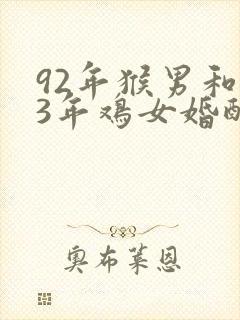 92年猴男和
3年鸡女婚配
奥布莱恩